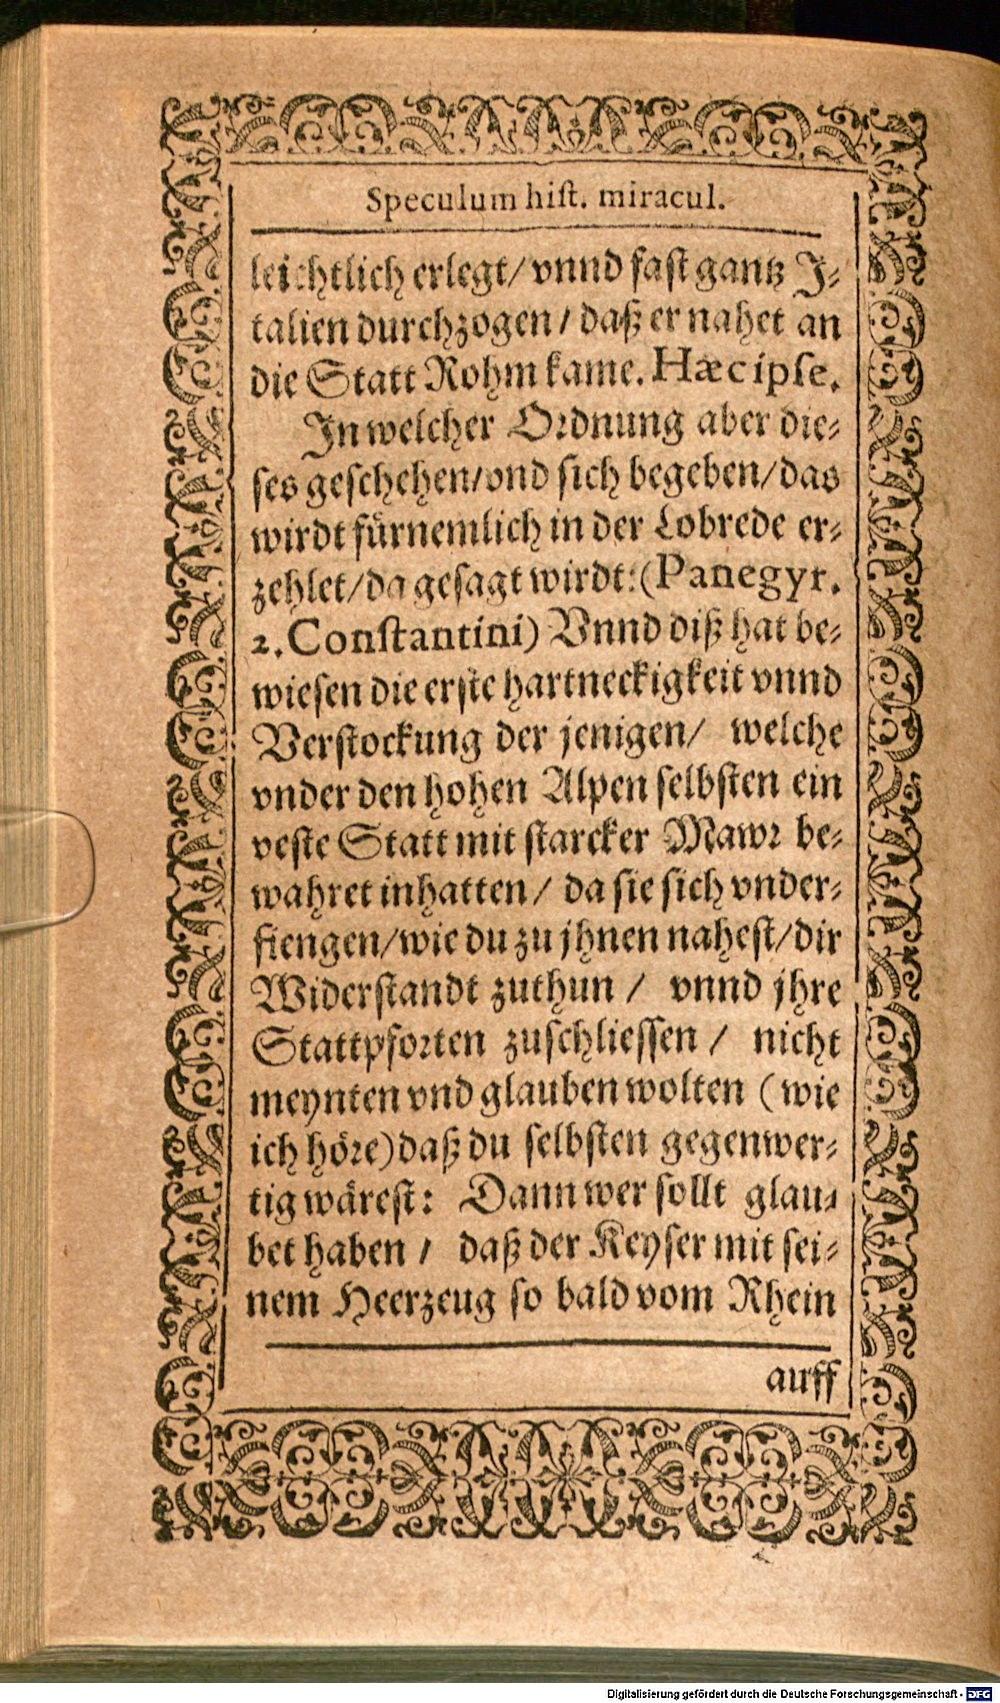 Speculum hiſt. miracul.
leichtlich erlegt/ vnnd faſt gantz J⸗
talien durchzogen / daß er nahet an
die Statt Rohm kame. Hæc ipſe.
Jn welcher Ordnung aber die⸗
ſes geſchehen/vnd ſich begeben/das
wirdt fürnemlich in der Lobrede er⸗
zehlet/da geſagt wirdt:(Panegyr.
2. Conſtantini) Vnnd diß hat be⸗
wieſen die erſte hartneckigkeit vnnd
Verſtockung der jenigen/ welche
vnder den hohen Alpen ſelbſten ein
veſte Statt mit ſtarcker Mawr be⸗
wahret inhatten / da ſie ſich vnder⸗
fiengen/wie du zu jhnen naheſt/dir
Widerſtandt zuthun / vnnd jhre
Stattpforten zuſchlieſſen / nicht
meynten vnd glauben wolten (wie
ich höre)daß du ſelbſten gegenwer⸗
tig wäreſt: Dann wer ſollt glau⸗
bet haben / daß der Keyſer mit ſei⸗
nem Heerzeug ſo bald vom Rhein
auff
Digitalisierung gefördert durch die Deutsche Forschungsgemeinschaft - DFG